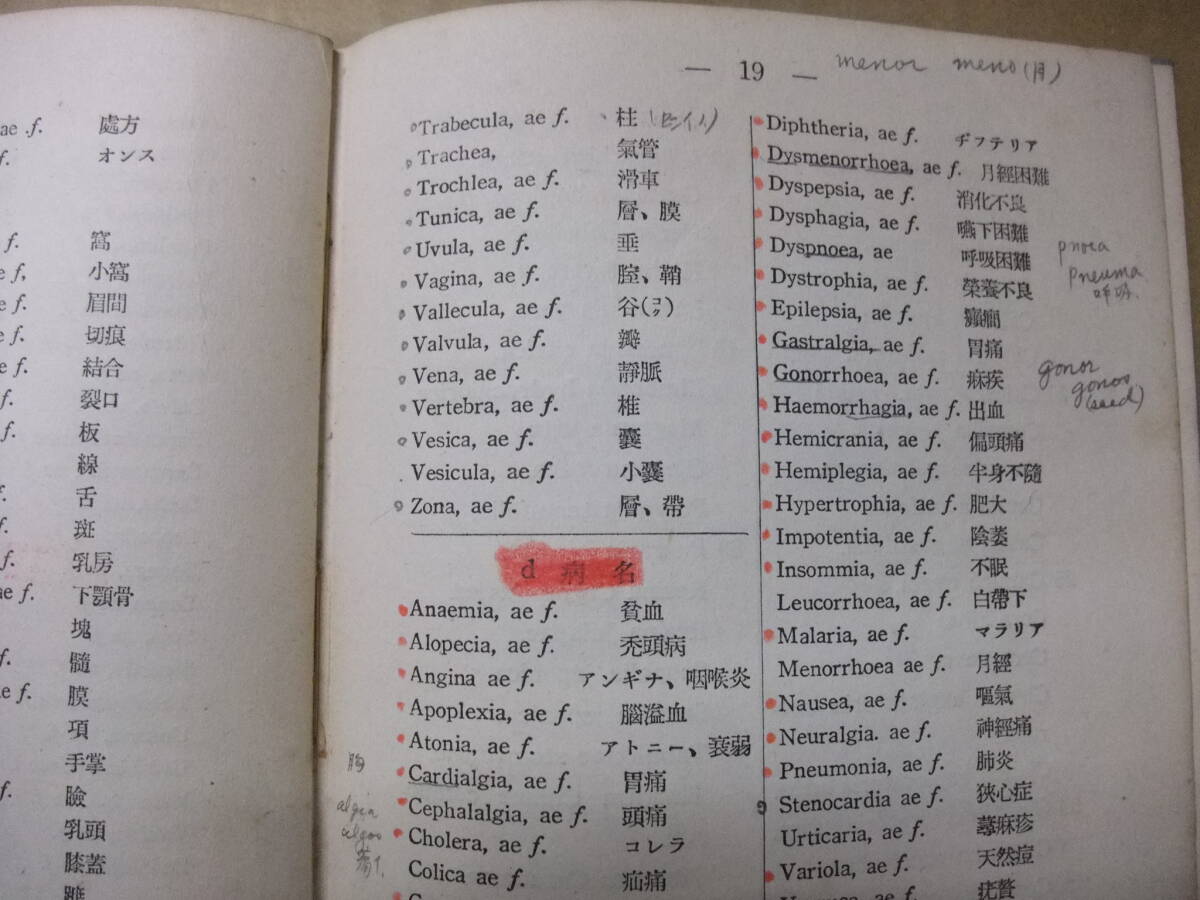 ae f. 處方
f. オンス
f. 窩
e f, 小窩
e f. 眉間
e f. 切痕
e f. 結合
f. 裂口
f. 板
線
f. 舌
f. 斑
f. 乳房
ae f. 下顎骨
塊
f. 髓
e f. 膜
項
手掌
f. 瞼
乳頭
膝蓋
— 19 —
menor meno (月)
Trabecula, ae f. 柱
Trachea, 氣管
Trochlea, ae f. 滑車
Tunica, ae f. 層、膜
Uvula, ae f. 垂
Vagina, ae f. 腟、鞘
Vallecula, ae f. 谷(コク)
Valvula, ae f. 瓣
Vena, ae f. 靜脈
Vertebra, ae f. 椎
Vesica, ae f. 囊
Vesicula, ae f. 小囊
Zona, ae f. 層、帶
d 病名
Anaemia, ae f. 貧血
Alopecia, ae f. 禿頭病
Angina ae f. アンギナ、咽喉炎
Apoplexia, ae f. 腦溢血
Atonia, ae f. アトニー、衰弱
Cardialgia, ae f. 胃痛
Cephalalgia, ae f. 頭痛
Cholera, ae f. コレラ
Colica ae f. 疝痛
胸
algia
algos
痛
Diphtheria, ae f. ヂフテリア
Dysmenorrhoea, ae f. 月經困難
Dyspepsia, ae f. 消化不良
Dysphagia, ae f. 嚥下困難
Dyspnoea, ae 呼吸困難
Dystrophia, ae f. 榮養不良
Epilepsia, ae f. 癲癇
Gastralgia, ae f. 胃痛
Gonorrhoea, ae f. 痳疾
Haemorrhagia, ae f. 出血
Hemicrania, ae f. 偏頭痛
Hemiplegia, ae f. 半身不隨
Hypertrophia, ae f. 肥大
Impotentia, ae f. 陰萎
Insommia, ae f. 不眠
Leucorrhoea, ae f. 白帶下
Malaria, ae f. マラリア
Menorrhoea ae f. 月經
Nausea, ae f. 嘔氣
Neuralgia. ae f. 神經痛
Pneumonia, ae f. 肺炎
Stenocardia ae f. 狹心症
Urticaria, ae f. 蕁麻疹
Variola, ae f. 天然痘
疣贅
pnoea
pneuma
呼吸.
gonor
gonos
(seed)